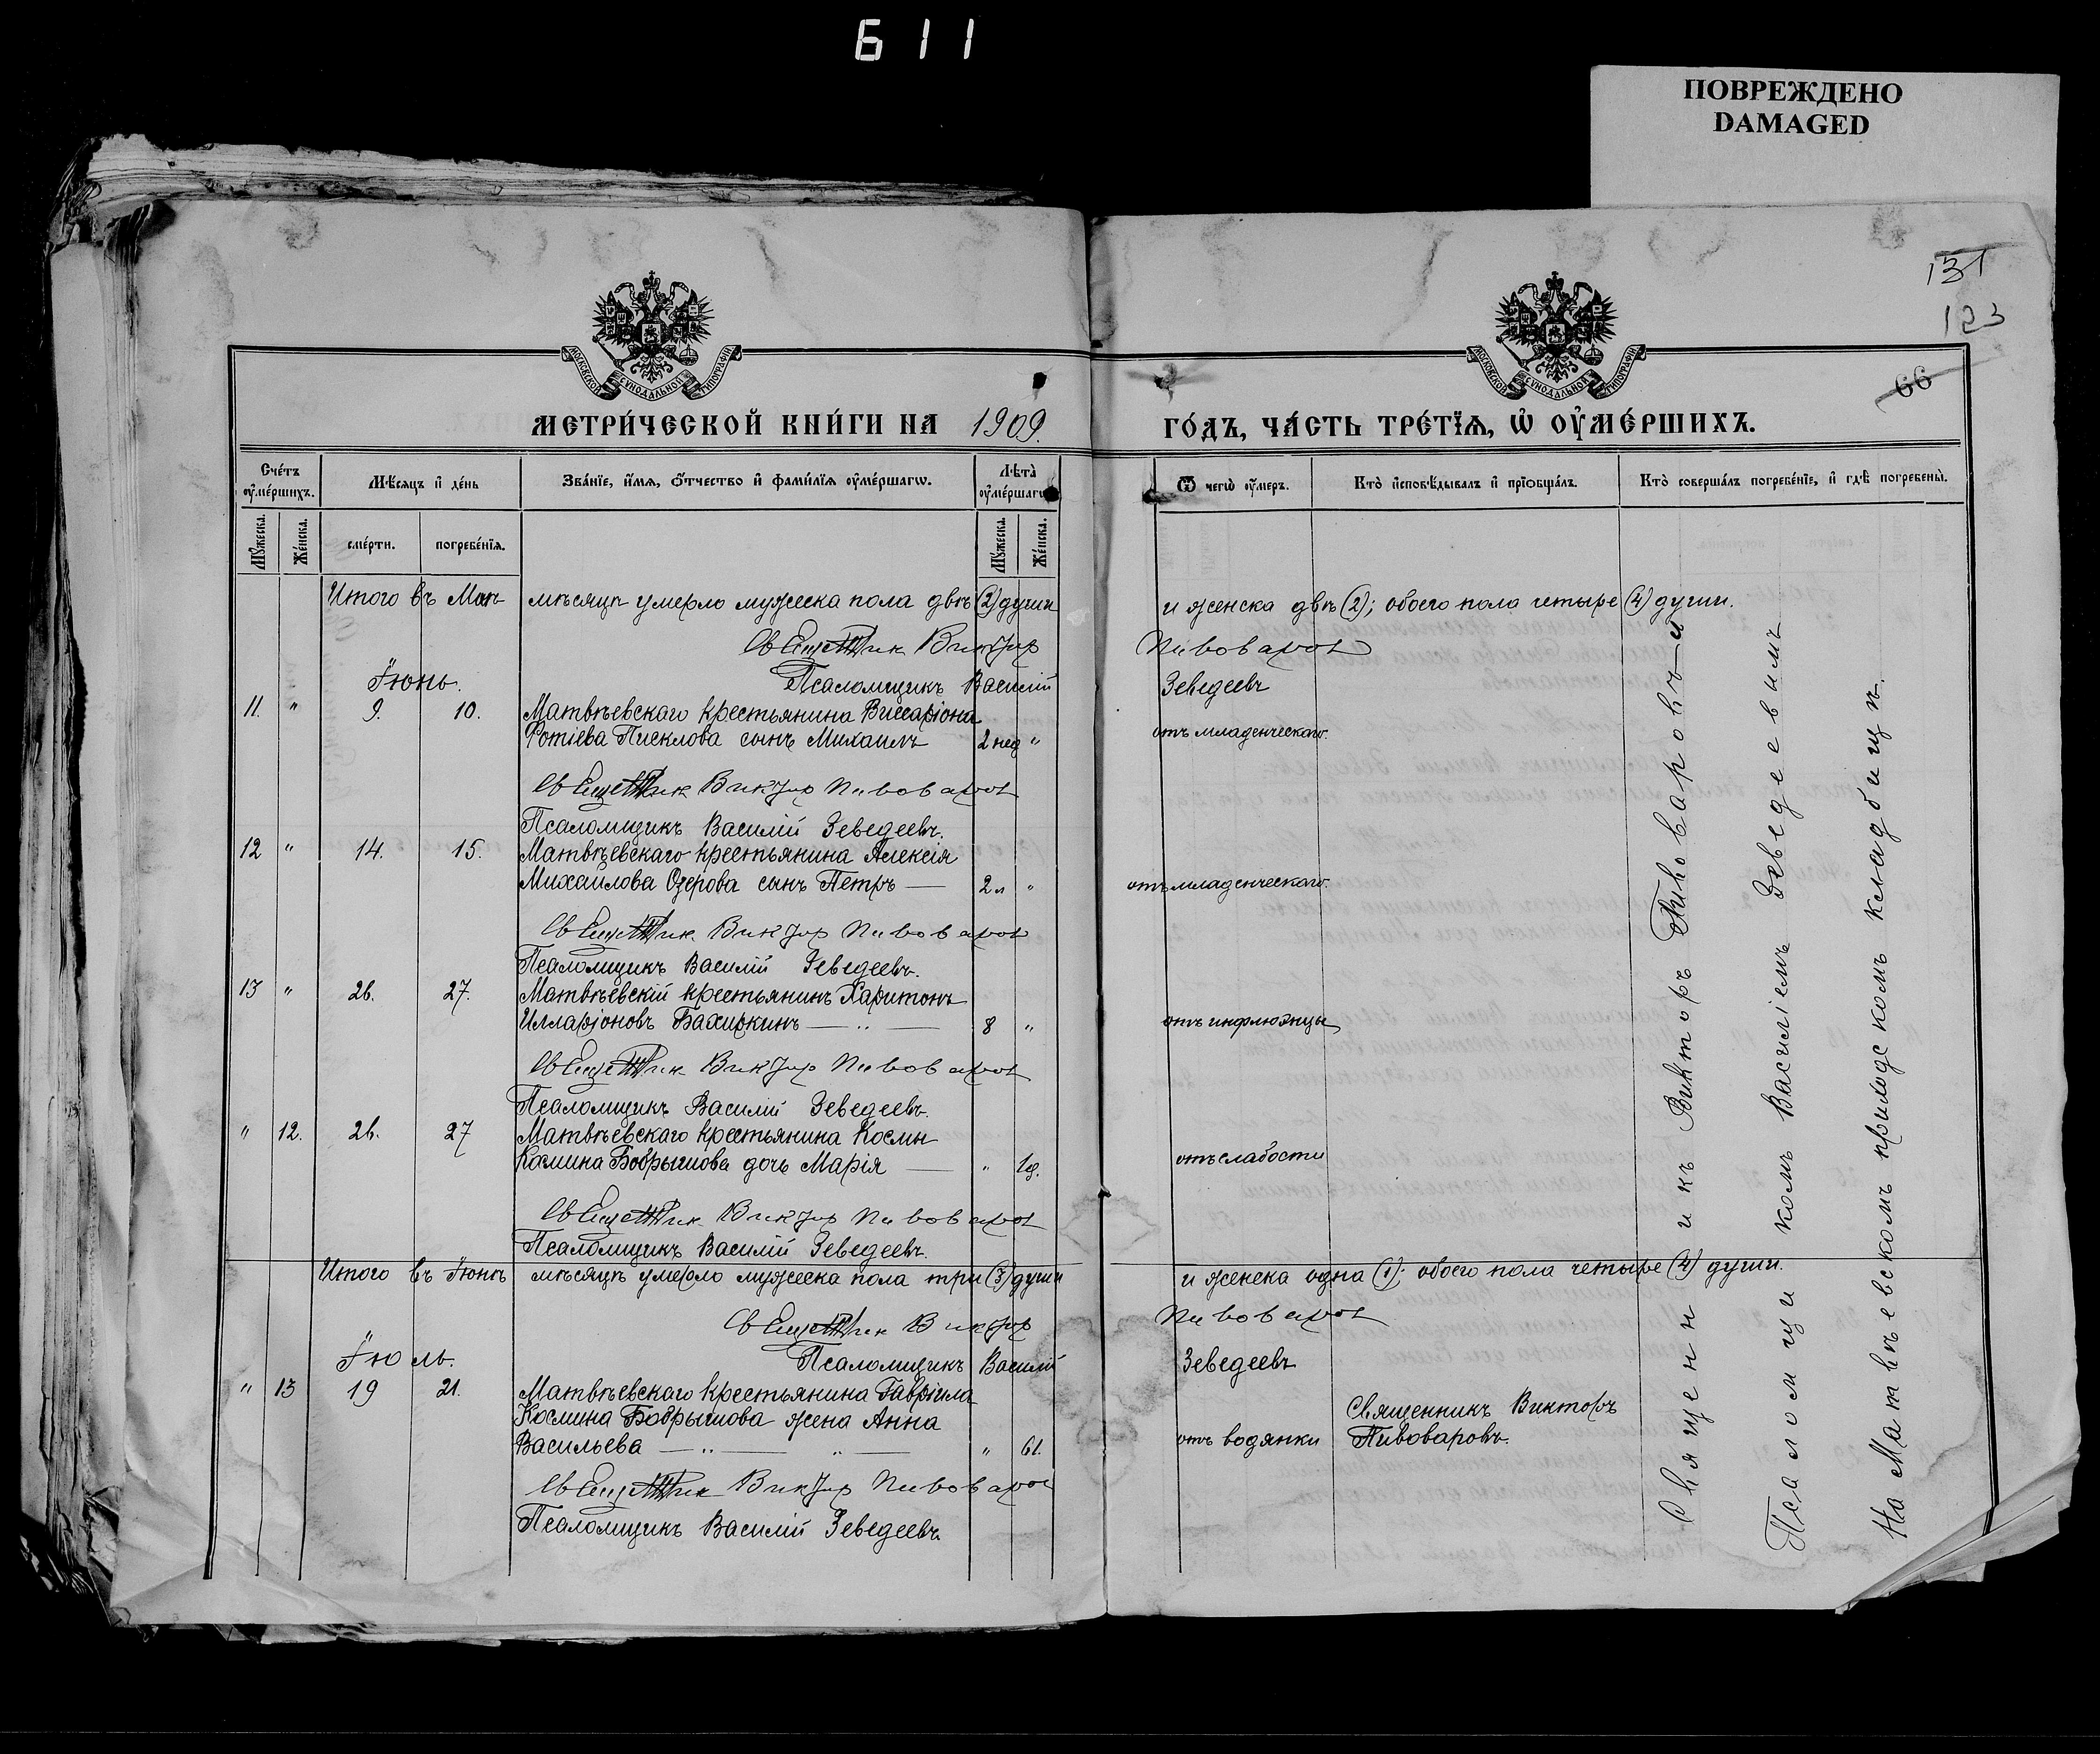 611
ПОВРЕЖДЕНО
DAMAGED
131
123
66
МОСКОВСКОЙ СѴНОДАЛЬНОЙ ТИПОГРАФІИ
МОСКОВСКОЙ СѴНОДАЛЬНОЙ ТИПОГРАФІИ
МЕТРИ́ЧЕСКОЙ КНИ́ГИ НА 1909. ГО́ДЪ, ЧА́СТЬ ТРЕ́ТЇѦ, Ѡ҆ ОУ҆МЕ́РШИХЪ.
Сче́тъ оу҆ме́ршихъ. Мѣ́сѧцъ и҆ де́нь Зва́нїе, и҆́мѧ, ѻ҆́тчество и҆ фами́лїѧ оу҆ме́ршагѡ. Лѣ́та оу҆ме́ршагѡ Ѿ чегѡ̀ оу҆́меръ. Кто̀ и҆сповѣ́дывалъ и҆ прїобща́лъ. Кто̀ соверша́лъ погребе́нїе, и҆ гдѣ̀ погребены̀.
Мꙋ́жеска. Же́нска. сме́рти. погребе́нїѧ. Мꙋ́жеска. Же́нска.
Итого въ Маѣ мѣсяцѣ умерло мужеска пола двѣ (2) души и женска двѣ (2); обоего пола четыре (4) души.
Священник Виктор Пивоваров
Іюнь. Псаломщикъ Василій Зеведеевъ
11. " 9. 10. Матвѣевскаго крестьянина Виссаріона
Фотіева Писклова сынъ Михаилъ 2 нед " отъ младенческаго.
Священник Виктор Пивоваров
Псаломщикъ Василій Зеведеевъ.
12 " 14. 15. Матвѣевскаго крестьянина Алексія
Михайлова Озерова сынъ Петръ — 2 л " отъ младенческаго.
Священник Виктор Пивоваров
Псаломщикъ Василій Зеведеевъ.
13 " 26. 27. Матвѣевскій крестьянинъ Харитонъ
Илларіоновъ Бахиркинъ — .. — 8 " отъ инфлюэнцы
Священник Виктор Пивоваров
Псаломщикъ Василій Зеведеевъ.
" 12. 26. 27 Матвѣевскаго крестьянина Космы
Космина Бобрышова дочь Марія — " 1 д. отъ слабости
Священник Виктор Пивоваров
Псаломщикъ Василій Зеведеевъ.
Итого въ Іюнѣ мѣсяцѣ умерло мужеска пола три (3) души и женска одна (1); обоего пола четыре (4) души.
Священник Виктор Пивоваров
Іюль. Псаломщикъ Василій Зеведеевъ
" 13 19 21. Матвѣевскаго крестьянина Гавріила
Космина Бобрышова жена Анна Священникъ Викторъ
Васильева — .. — " — " 61. отъ водянки Пивоваровъ.
Священник Виктор Пивоваров
Псаломщикъ Василій Зеведеевъ
Священникъ Викторъ Пивоваровъ съ
Псаломщикомъ Василіемъ Зеведеевимъ
На Матвѣевскомъ приходскомъ кладбищѣ.